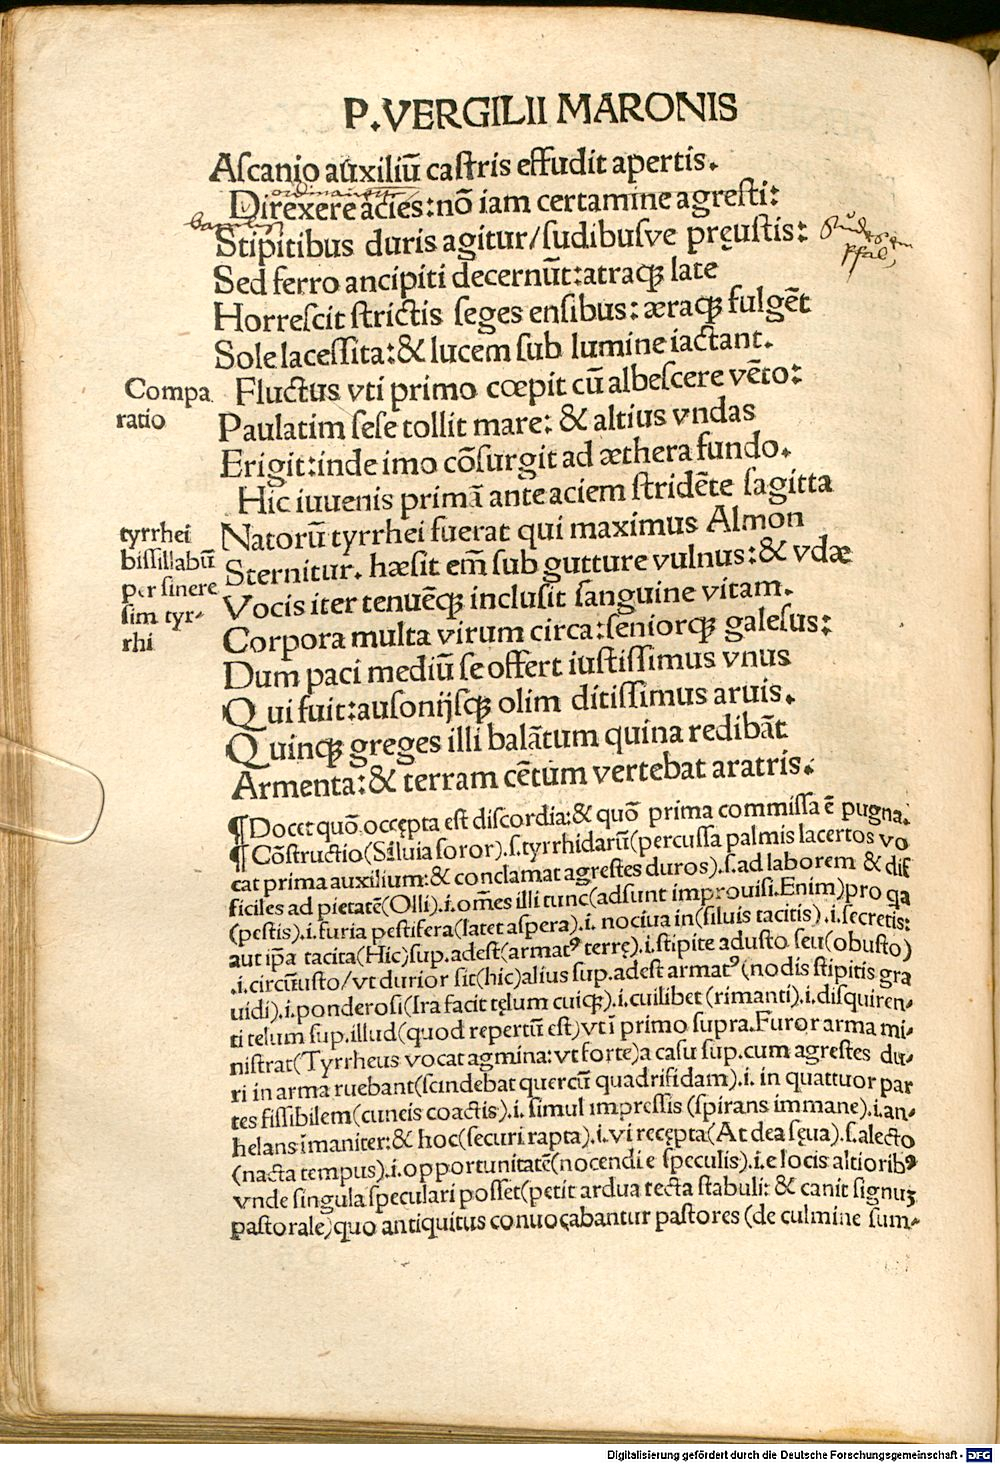 P.VERGILII MARONIS
Aſcanio auxiliū caſtris effudit apertis.
Direxere acies:nō iam certamine agreſti:
Stipitibus duris agitur/ſudibuſve pręuſtis:
Sed ferro ancipiti decernūt:atraqꝫ late
Horreſcit ſtrictis ſeges enſibus: æraqꝫ fulgēt
Sole laceſſita:& lucem ſub lumine iactant.
Compa
ratio
Fluctus vti primo cœpit cū albeſcere vēto:
Paulatim ſeſe tollit mare: & altius vndas
Erigit:inde imo cōſurgit ad æthera fundo.
Hic iuvenis primā ante aciem ſtridēte ſagitta
tyrrhei
biſſillabū
per ſinere
ſim tyr-
rhi
Natorū tyrrhei fuerat qui maximus Almon
Sternitur. hæſit em̄ ſub gutture vulnus:& vdæ
Vocis iter tenuēqꝫ incluſit ſanguine vitam.
Corpora multa virum circa:ſeniorqꝫ galeſus:
Dum paci mediū ſe offert iuſtiſſimus vnus
Qui fuit:auſonijſqꝫ olim ditiſſimus aruis.
Quinqꝫ greges illi balātum quina redibāt
Armenta:& terram cētum vertebat aratris.
¶Docet quō occępta eſt diſcordia:& quō prima commiſſa ē pugna.
¶Cōſtructio(Siluia ſoror).ſ.tyrrhidarū(percuſſa palmis lacertos vo
cat prima auxilium:& conclamat agreſtes duros).ſ.ad laborem & dif
ficiles ad pietatē(Olli).i.om̄es illi tunc(adſunt improuiſi.Enim)pro qa
(peſtis).i.furia peſtifera(latet aſpera).i. nociua in(ſiluis tacitis).i.ſecretis:
aut ip̄a tacita(Hic)ſup.adeſt(armatꝰ terrę).i.ſtipite aduſto ſeu(obuſto)
.i.circūuſto/vt durior ſit(hic)alius ſup.adeſt armatꝰ(nodis ſtipitis gra
uidi).i.ponderoſi(Ira facit tęlum cuiqꝫ).i.cuilibet (rimanti).i.diſquiren-
ti telum ſup.illud(quod repertū eſt)vt ī primo ſupra.Furor arma mi-
niſtrat(Tyrrheus vocat agmina:vt forte)a caſu ſup.cum agreſtes du-
ri in arma ruebant(ſcindebat quercū quadrifidam).i. in quattuor par
tes fiſſibilem(cuneis coactis).i. ſimul impreſſis (ſpirans immane).i.an-
helans īmaniter:& hoc(ſecuri rapta).i.vi recępta(At dea ſęua).ſ.alecto
(nacta tempus).i.opportunitatē(nocendi e ſpeculis).i.e locis altioribꝰ
vnde ſingula ſpeculari poſſet(petit ardua tecta ſtabuli: & canit ſignuꝫ
paſtorale)quo antiquitus conuocabantur paſtores (de culmine ſum-
Digitalisierung gefördert durch die Deutsche Forschungsgemeinschaft - DFG